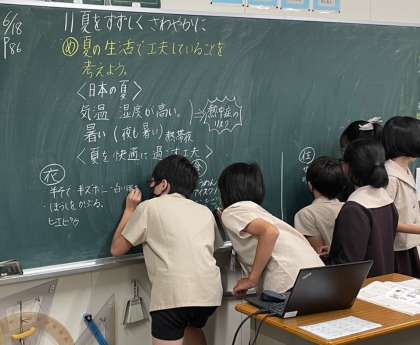 6/18
P86
11 夏をすずしくさわやかに
め 夏の生活で工夫していることを
考えよう。
〈日本の夏〉
気温 湿度が高い。 ⇒ 熱中症の
暑い(夜も暑い) 熱帯夜
〈夏を快適に過ごす工夫〉
衣
食
住
・ぼうしをかぶる。